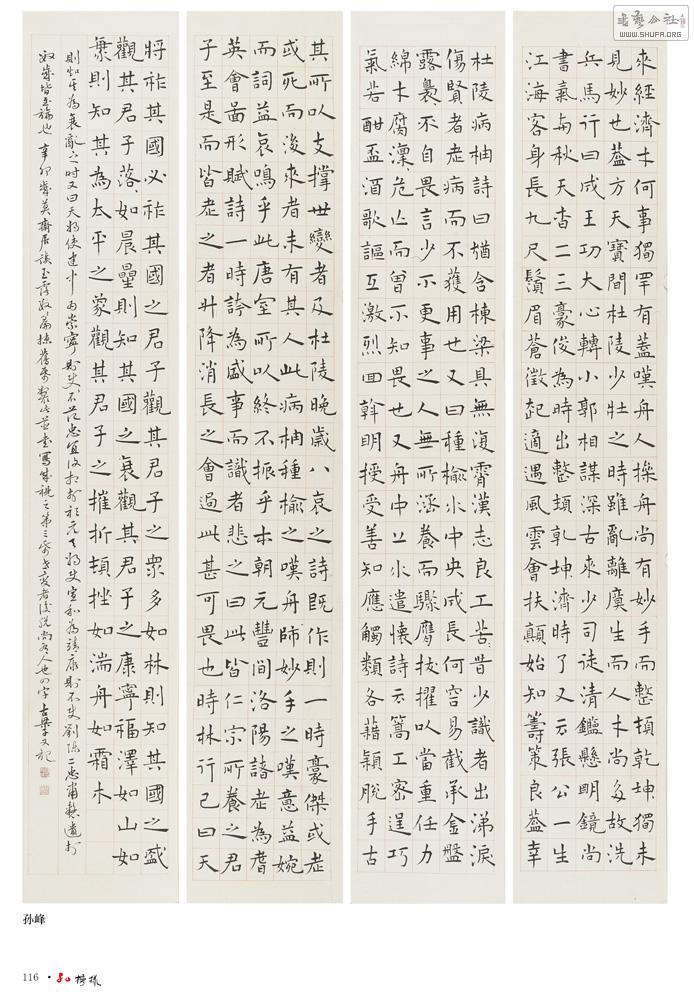 來經濟才何事獨罕有蓋嘆舟人操舟尚有妙手而整頓乾坤獨未
見妙也蓋方天寶間杜陵少壯之時雖亂離廣生而人才尚多故洗
兵馬行曰成王功大心轉小郭相謀深古來少司徒清鑑懸明鏡尚
書氣與秋天杳二三豪俊為時出整頓乾坤濟時了又云張公一生
江海客身長九尺鬚眉蒼徵起適遇風雲會扶顛始知籌策良蓋幸
杜陵病柟詩曰猶含棟梁具無復霄漢志良工苦昔少識者出涕淚
傷賢者老病而不獲用也又曰種榆水中央成長何容易截承金盤
露裊不自畏言少不更事之人無所涵養而驟膺拔擢以當重任力
綿才腐凜危亾而曾不知畏也又舟中上水遣懷詩云篙工密逞巧
氣若酣盃酒歌謳互激烈回斡明授受善知應觸類各藉穎脫手古
其所以支撐世變者及杜陵晚歲八哀之詩既作則一時豪傑或老
或死而後來者未有其人此病柟種榆之嘆舟師妙手之嘆意益婉
而詞益哀鳴乎此唐室所以終不振乎本朝元豐間洛陽諸老為耆
英會圖形賦詩一時誇為盛事而識者悲之曰此皆仁宗所養之君
子至是而皆老之者升降消長之會過此甚可畏也時林行己曰天
將祚其國必祚其國之君子觀其君子之眾多如林則知其國之盛
觀其君子落如晨曐則知其國之衰觀其君子之康寧福澤如山如
則知其為太平之象觀其君子之摧折頓挫如湍舟如霜木
則知其為衰亂之時又曰天將使建中為崇寧則 不 忠宣 元 天將使宣和為靖康則不使劉陳二忠肅 遺
辛卯 居 玉露 書寫 第三 也 字 又記
孙峰
116
WWW.SHUFA.ORG